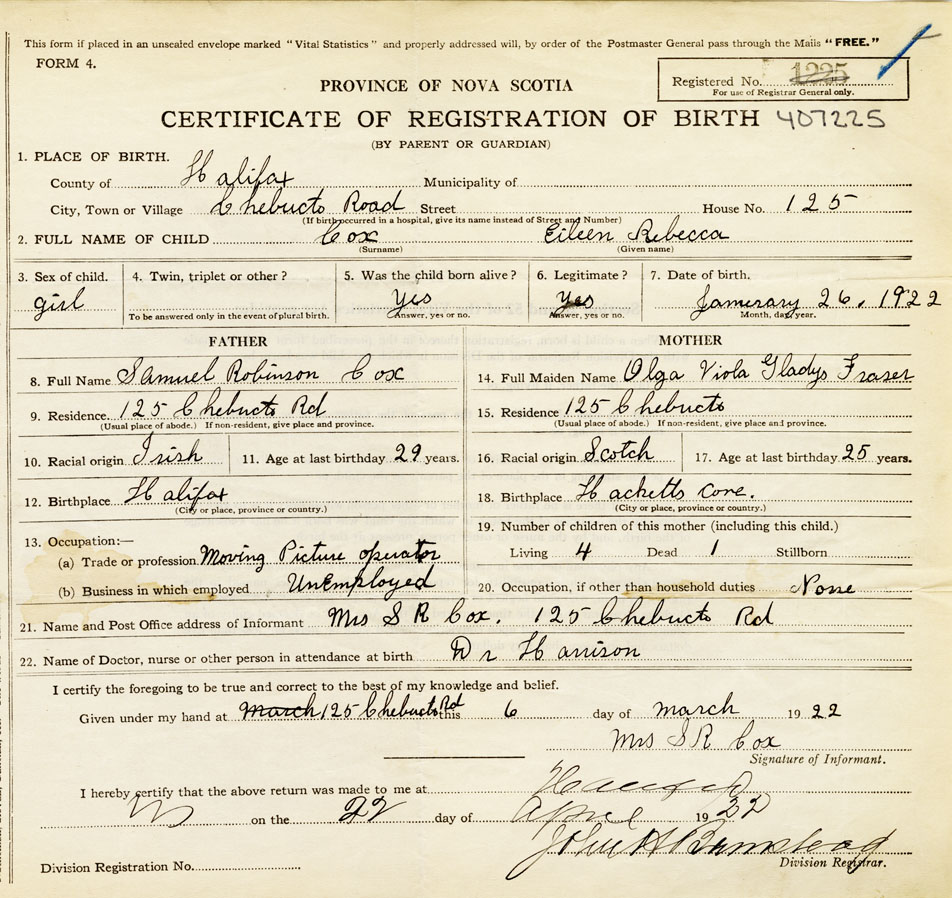 This form if placed in an unsealed envelope marked "Vital Statistics" and properly addressed will, by order of the Postmaster General pass through the Mails "FREE."
FORM 4.
Registered No. 1225
For use of Registrar General only.
PROVINCE OF NOVA SCOTIA
CERTIFICATE OF REGISTRATION OF BIRTH 407225
(BY PARENT OR GUARDIAN)
1. PLACE OF BIRTH.
County of Halifax Municipality of
City, Town or Village Chebucto Road Street House No. 125
(If birth occurred in a hospital, give its name instead of Street and Number)
2. FULL NAME OF CHILD Cox Eileen Rebecca
(Surname) (Given name)
3. Sex of child. 4. Twin, triplet or other? 5. Was the child born alive? 6. Legitimate? 7. Date of birth.
girl Yes Yes Jamerary 26, 1922
To be answered only in the event of plural birth. Answer, yes or no. Answer, yes or no. Month, day, year.
FATHER MOTHER
8. Full Name Samuel Robinson Cox
14. Full Maiden Name Olga Viola Gladys Fraser
9. Residence. 125 Chebucto Rd
(Usual place of abode.) If non-resident, give place and province.
15. Residence 125 Chebucto
(Usual place of abode.) If non-resident, give place and province.
10. Racial origin Irish 11. Age at last birthday 29 years.
16. Racial origin Scotch 17. Age at last birthday 25 years.
12. Birthplace Halifax
(City or place, province or country.)
18. Birthplace Hacketts Core.
(City or place, province or country.)
13. Occupation:—
(a) Trade or profession Moving Picture operator
(b) Business in which employed UnEmployed
19. Number of children of this mother (including this child.)
Living 4 Dead 1 Stillborn
20. Occupation, if other than household duties None
21. Name and Post Office address of Informant Mrs S R Cox. 125 Chebucto Rd
22. Name of Doctor, nurse or other person in attendance at birth Dr Harrison
I certify the foregoing to be true and correct to the best of my knowledge and belief.
Given under my hand at March 125 Chebucto Rd this 6 day of march 1922
Mrs S R Cox
Signature of Informant.
I hereby certify that the above return was made to me at
on the 22 day of April 1922
John A
Division Registrar.
Division Registration No.